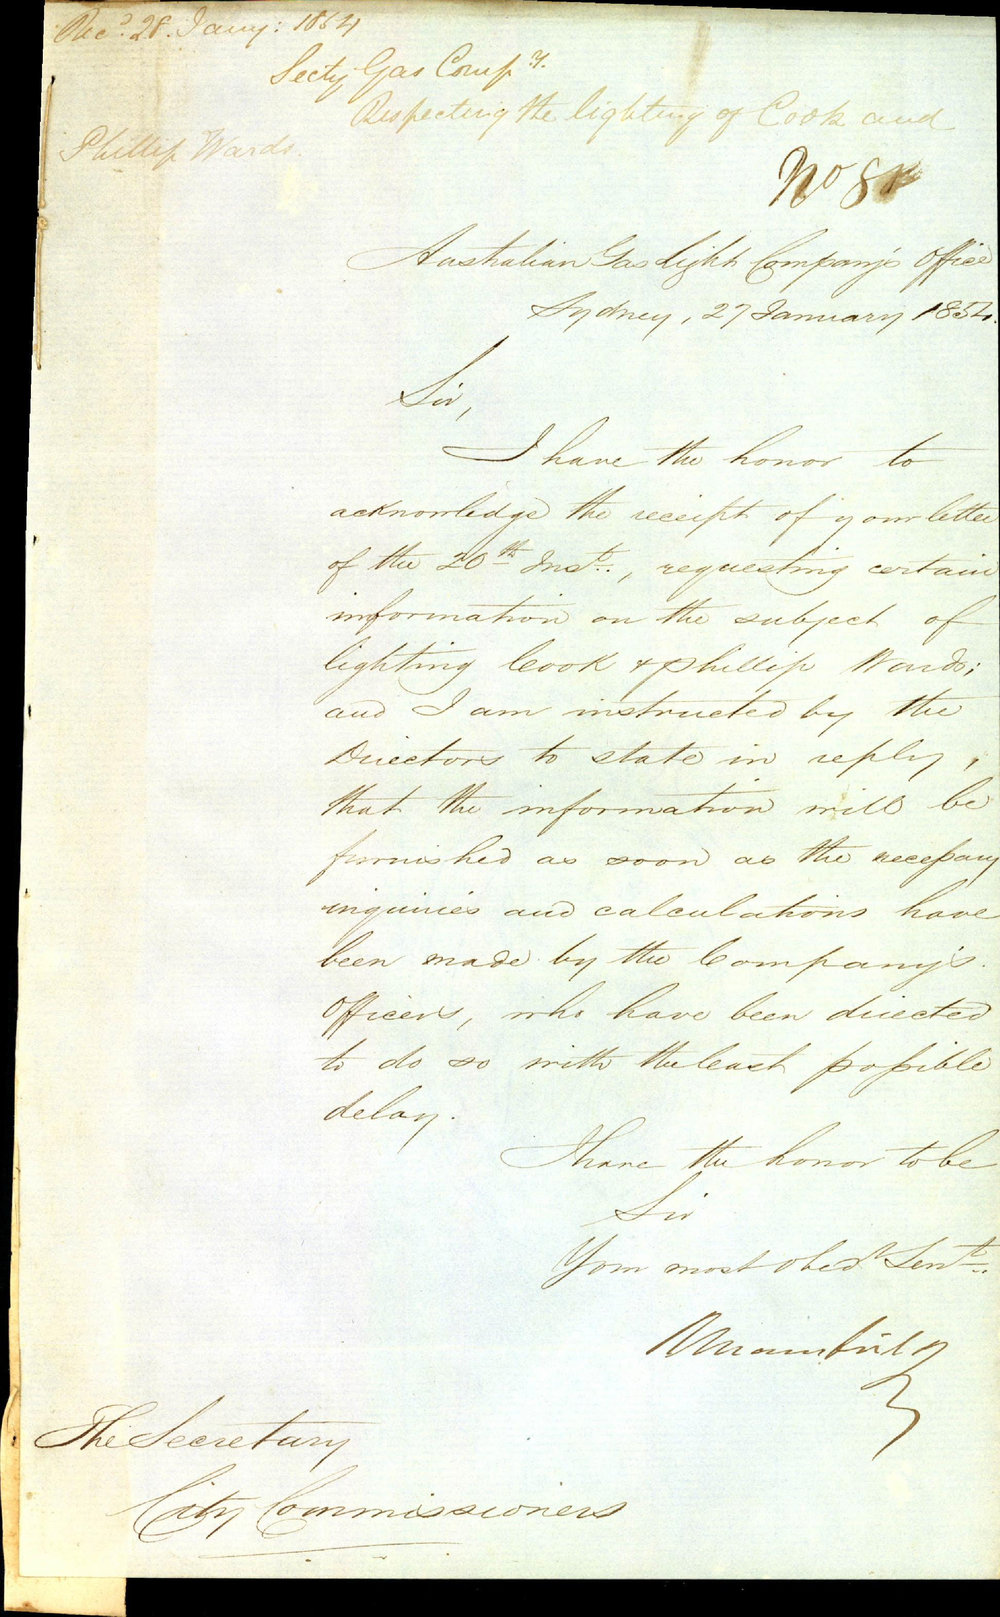 Rec^d. 28. Jany: 1854
Secty Gas Comp^y.
Respecting the lighting of Cook and
Phillip Wards.
No 8
Australian Gas Light Company's Office
Sydney, 27 January 1854.
Sir,
I have the honor to
acknowledge the receipt of your letter
of the 20th Inst., requesting certain
information on the subject of
lighting Cook & Phillip Wards;
and I am instructed by the
Directors to state in reply,
that the information will be
furnished as soon as the necessary
inquiries and calculations have
been made by the Company's
Officers, who have been directed
to do so with the least possible
delay.
I have the honor to be
Sir
Your most obed^t Serv^t.
The Secretary
City Commissioners